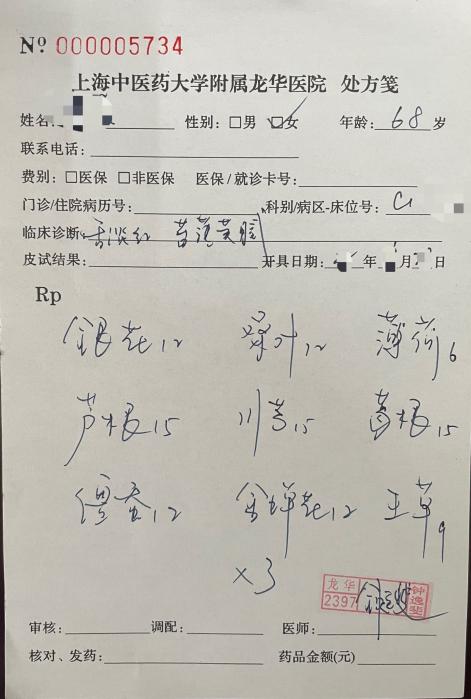 № 000005734
上海中医药大学附属龙华医院 处方笺
姓名: 性别:□男 □女 年龄: 68 岁
联系电话:
费别:□医保 □非医保 医保/就诊卡号:
门诊/住院病历号: 科别/病区-床位号:
临床诊断: 舌淡红 苔薄黄腻
皮试结果: 开具日期: 年 月 日
Rp
银花12 桑叶12 薄荷6
芦根15 川芎15 葛根15
僵蚕12 金蝉花12 玉草9
×3
龙华 2397 钟逸斐
审核: 调配: 医师:
核对、发药: 药品金额(元)